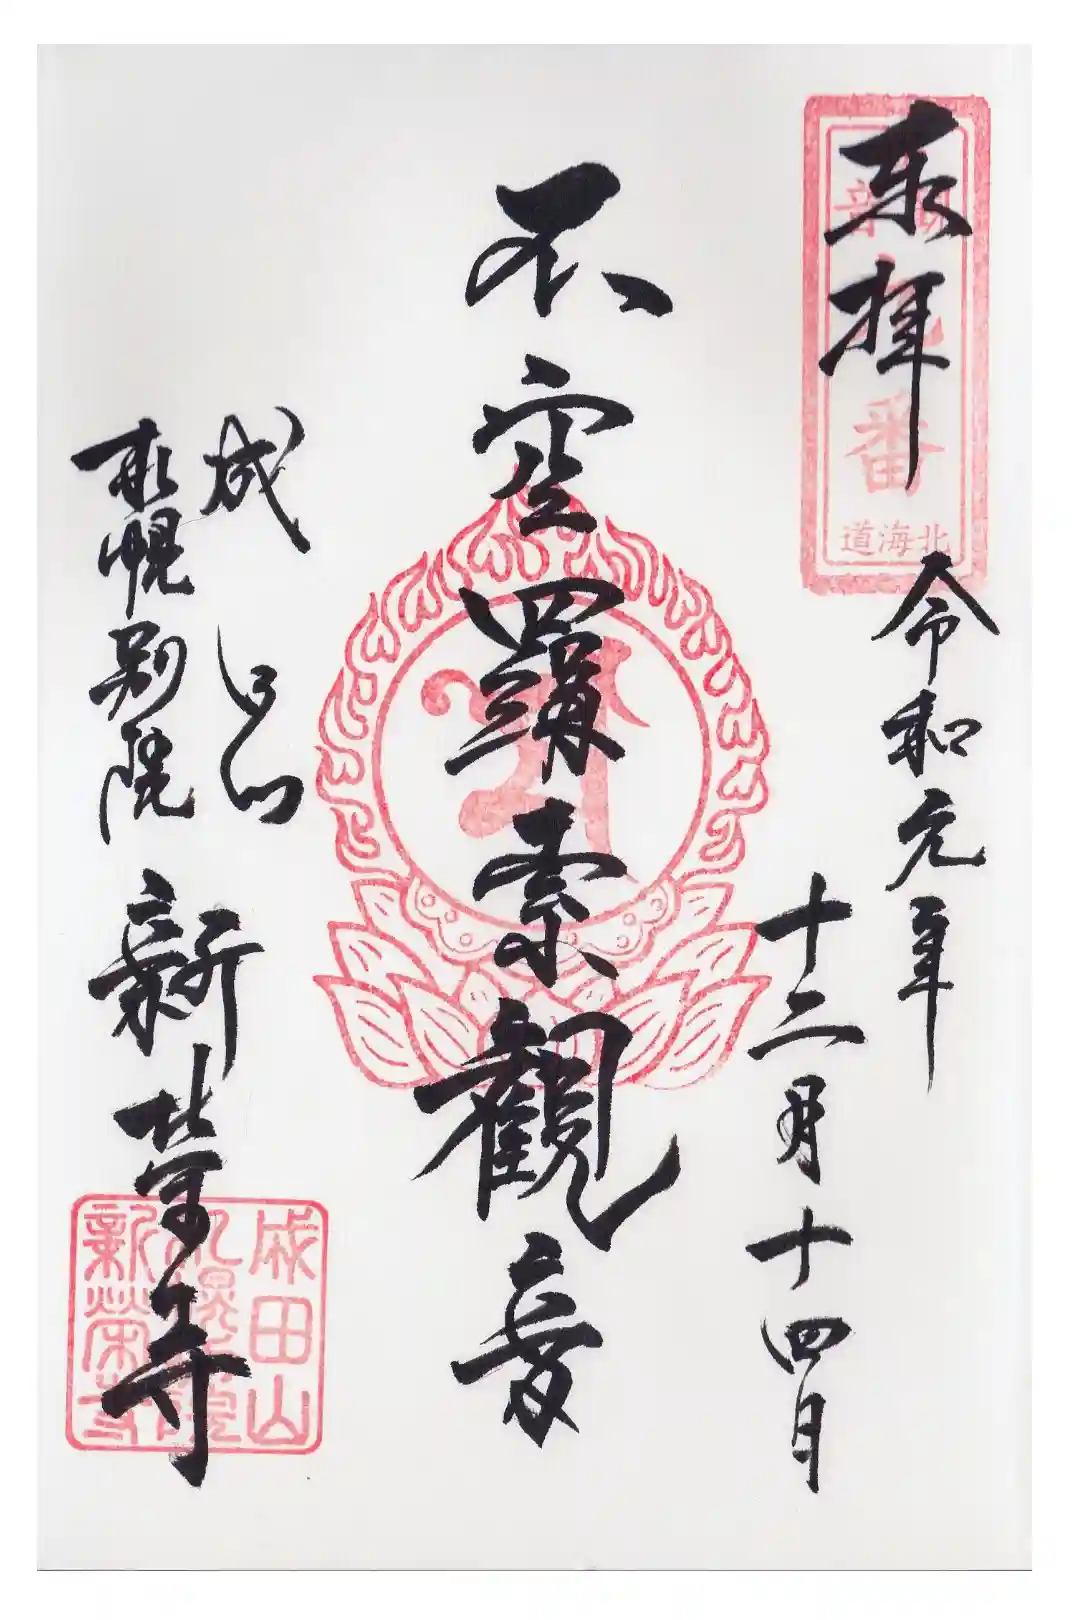 奉拝
番
北海道
令和元年
十二月十四日
不空羂索觀音
成田山
札幌別院
新栄寺
成田山
札幌別院
新栄寺